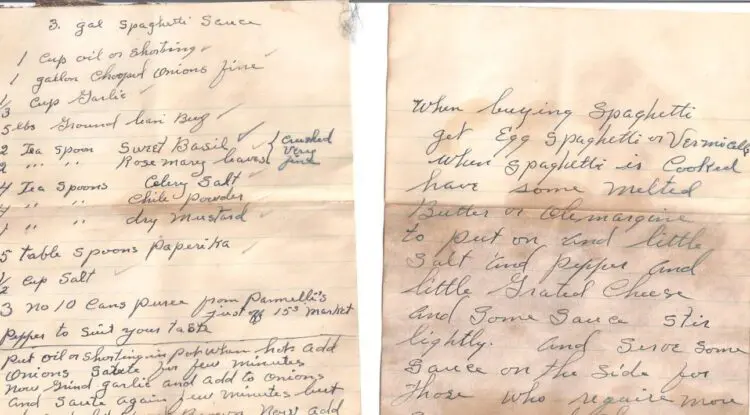 3. gal Spaghetti Sauce
1 Cup oil or Shorting
1 gallon Chopped onions fine
1/3 Cup Garlic
5 lbs Ground lean Beef
2 Tea Spoon Sweet Basil } Crushed
2 " " Rosemary leaves } Very fine
4 Tea Spoons Celery Salt
" " Chile Powder
1 " " dry Mustard
5 table Spoons Paperika
1/2 Cup Salt
3 No 10 Cans puree from
just off 15 Market
Pepper to Suit your taste
Put oil or Shorting in pot when hot add
Onions Saute for few minutes
Now Grind garlic and add to onions
and Saute again few minutes but
Brown Now add
When buying Spaghetti
get Egg Spaghetti or Vermicelli
When Spaghetti is Cooked
have some Melted
Butter or Olemargine
to put on and little
Salt and Pepper and
little Grated Cheese
and Some Sauce Stir
lightly. and Serve Some
Sauce on the Side for
Those who require more